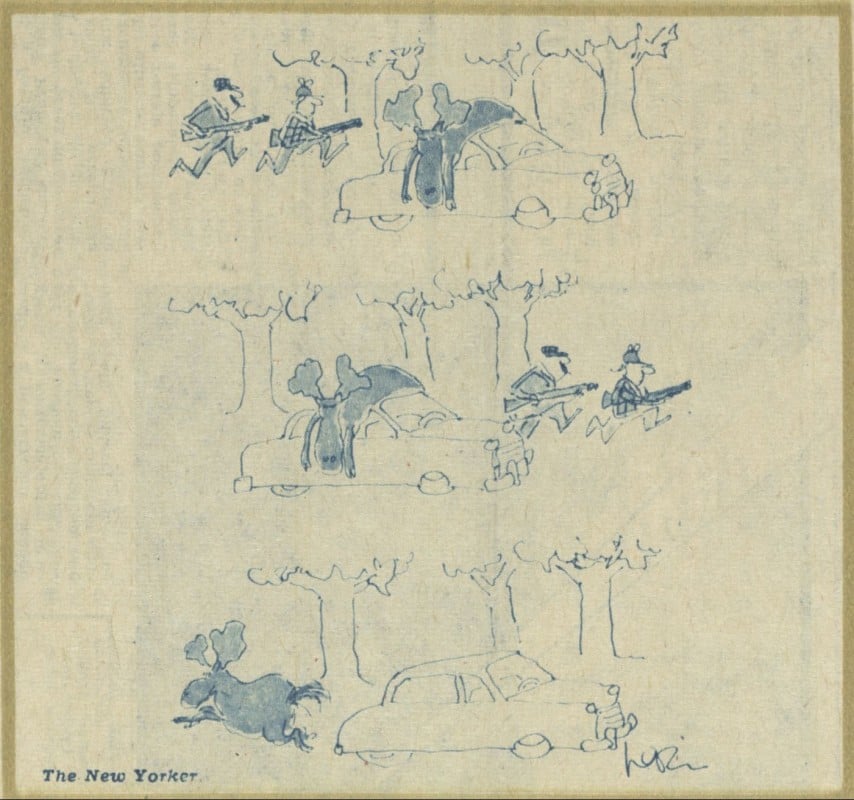 The New Yorker.